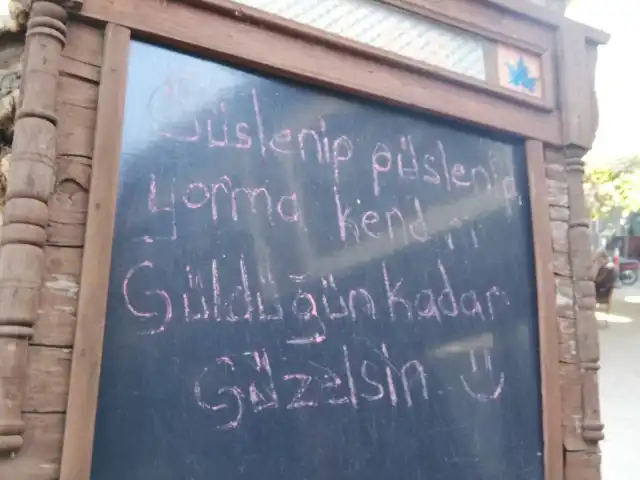 Süslenip püslenip
yorma kendini
Güldüğün kadar
Güzelsin